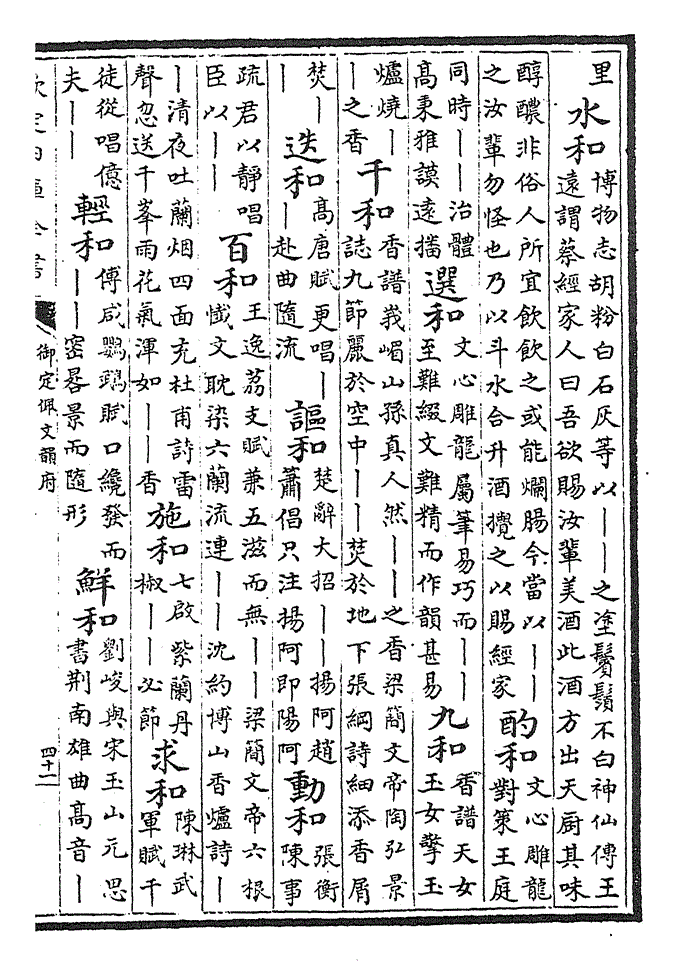 里
水和博物志胡粉白石灰等以――之塗鬢鬚不白神仙傳王
遠謂蔡經家人曰吾欲賜汝輩美酒此酒方出天厨其味
醇醲非俗人所宜飲飲之或能爛腸今當以――
之汝輩勿怪也乃以斗水合升酒攪之以賜經家
酌和文心雕龍
對策王庭
同時――治體
高秉雅謨遠播
選和文心雕龍屬筆易巧而――
至難綴文難精而作韻甚易
九和香譜天女
玉女擎玉
爐燒―
―之香
千和香譜峩嵋山孫真人然――之香梁簡文帝陶弘景
誌九節麗於空中――焚於地下張綱詩細添香屑
焚―
―
迭和高唐賦更唱―
―赴曲隨流
謳和楚辭大招――揚阿趙
簫倡只注揚阿即陽阿
動和張衡
陳事
疏君以靜唱
臣以――
百和王逸荔支賦兼五滋而無――梁簡文帝六根
懴文耽染六蘭流連――沈約博山香爐詩―
―清夜吐蘭烟四面充杜甫詩雷
聲忽送千峯雨花氣渾如――香
施和七啟紫蘭丹
椒――必節
求和陳琳武
軍賦千
徒從唱億
夫――
輕和傅咸鸚鵡賦口纔發而
――密晷景而隨形
鮮和劉峻與宋玉山元思
書荆南雄曲高音―
欽定四庫全書
御定佩文韻府
四十二